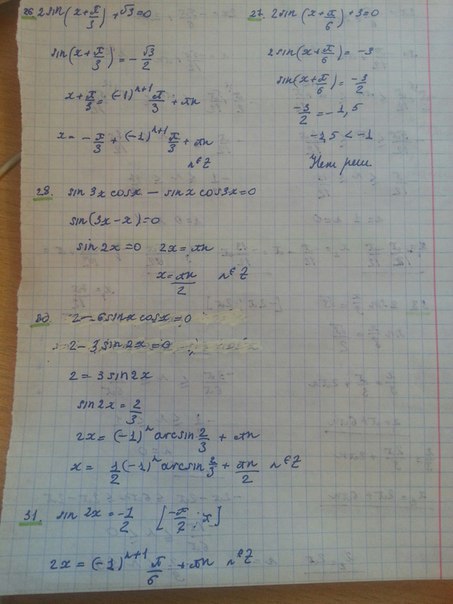 26. 2sin(x+π/3)+√3=0
sin(x+π/3)=-√3/2
x+π/3=(-1)ⁿ⁺¹π/3+πn
x=-π/3+(-1)ⁿ⁺¹π/3+πn
n∈Z
27. 2sin(x+π/6)+3=0
2sin(x+π/6)=-3
sin(x+π/6)=-3/2
-3/2=-1,5
-1,5<-1
Нет реш.
28. sin3xcosx-sinxcos3x=0
sin(3x-x)=0
sin2x=0 2x=πn
x=πn/2 n∈Z
30. 2-6sinxcosx=0
2-3sin2x=0
2=3sin2x
sin2x=2/3
2x=(-1)ⁿarcsin2/3+πn
x=1/2(-1)ⁿarcsin2/3+πn/2 n∈Z
31. sin2x=-1/2 [-π/2;π]
2x=(-1)ⁿ⁺¹π/6+πn n∈Z